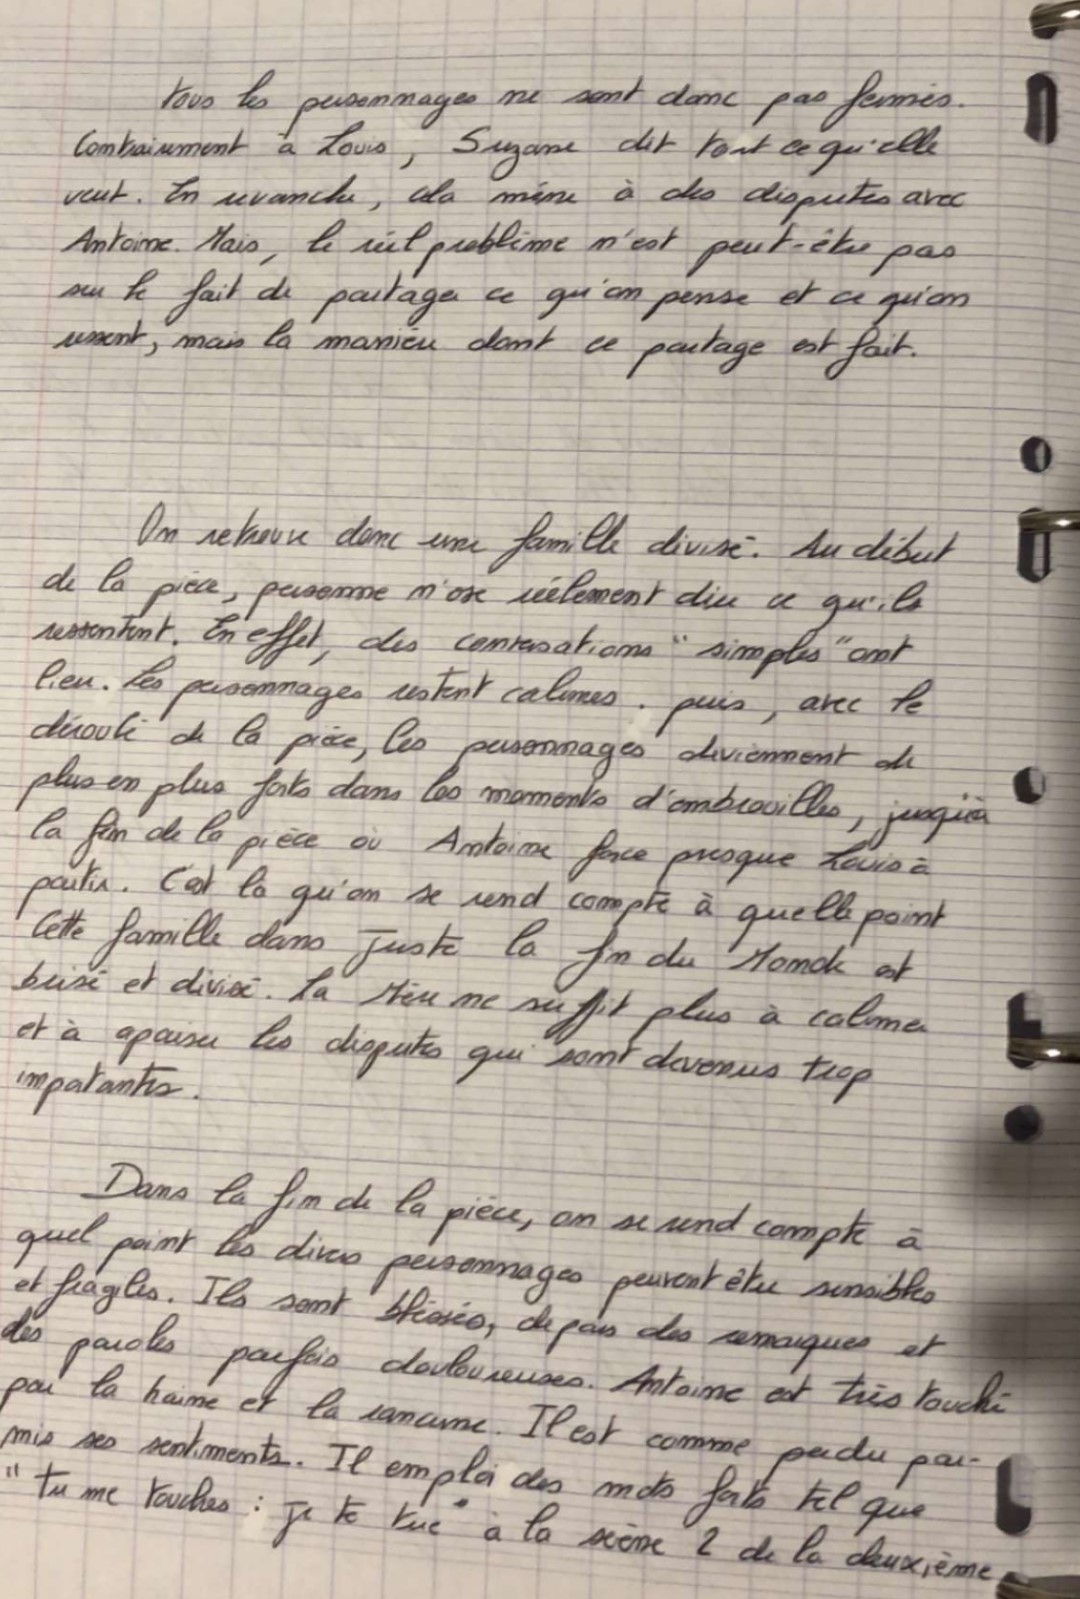 tous les personnages ne sont donc pas fermés.
Contrairement à Louis, Suzane dit tout ce qu'elle
veut. En revanche, cela mène à des disputes avec
Antoine. Mais, le réel problème n'est peut-être pas
sur le fait de partager ce qu'on pense et ce qu'on
ressent, mais la manière dont ce partage est fait.
On retrouve donc une famille divisé. Au début
de la pièce, personne n'ose réelement dire ce qu'ils
ressentent. En effet, des conversations "simples" ont
lieu. Les personnages restent calmes. puis, avec le
déroulé de la pièce, les personnages deviennent de
plus en plus forts dans les moments d'embrouilles, jusqu'à
la fin de la pièce où Antoine force presque Louis à
partir. C'est là qu'on se rend compte à quelle point
Cette famille dans Juste la fin du Monde est
brisé et divisé. La Mère ne suffit plus à calmer
et à apaiser les disputes qui sont devenus trop
impotantes.
Dans la fin de la pièce, on se rend compte à
quel point les divers personnages peuvent être sensibles
et fragiles. Ils sont bléssés, depuis des remarques et
des paroles parfois douloureuses. Antoine est très touché
par la haine et la rancune. Il est comme perdu par-
mis ses sentiments. Il emploi des mots forts tel que
"Tu me touches : je te tue" à la scène 2 de la deuxième